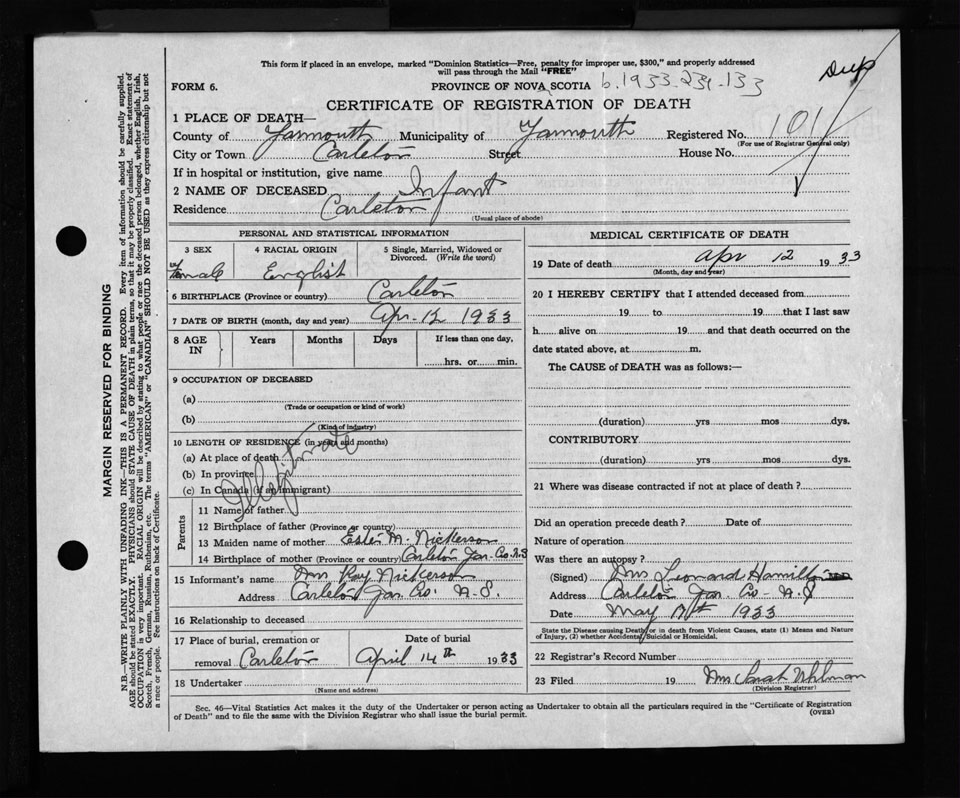 This form if placed in an envelope, marked "Dominion Statistics—Free, penalty for improper use, $300," and properly addressed
will pass through the Mail "FREE"
Dup
FORM 6.
PROVINCE OF NOVA SCOTIA b.1933-231-133
CERTIFICATE OF REGISTRATION OF DEATH
1 PLACE OF DEATH—
County of Yarmouth Municipality of Yarmouth Registered No. 101
(For use of Registrar General only)
City or Town Carleton Street House No.
If in hospital or institution, give name
2 NAME OF DECEASED Infant
Residence Carleton
(Usual place of abode)
PERSONAL AND STATISTICAL INFORMATION
3 SEX 4 RACIAL ORIGIN 5 Single, Married, Widowed or
Divorced. (Write the word)
Female English
6 BIRTHPLACE (Province or country) Carleton
7 DATE OF BIRTH (month, day and year) Apr. 12 1933
8 AGE IN Years Months Days If less than one day,
hrs. or min.
9 OCCUPATION OF DECEASED
(a)
(Trade or occupation or kind of work)
(b)
(Kind of industry)
10 LENGTH OF RESIDENCE (in years and months)
(a) At place of death
(b) In province
(c) In Canada (if an immigrant)
Illegitimate
Parents
11 Name of father
12 Birthplace of father (Province or country)
13 Maiden name of mother Ester M. Nickerson
14 Birthplace of mother (Province or country) Carleton Yar. Co. N.S
15 Informant's name Mrs Ray Nickerson
Address Carleton Yar. Co. N.S.
16 Relationship to deceased
17 Place of burial, cremation or Date of burial
removal Carleton April 14th 1933
18 Undertaker
(Name and address)
MEDICAL CERTIFICATE OF DEATH
19 Date of death Apr 12 1933
(Month, day and year)
20 I HEREBY CERTIFY that I attended deceased from
19 to 19 that I last saw
h alive on 19 and that death occurred on
date stated above, at m.
The CAUSE of DEATH was as follows:—
(duration) yrs mos dys.
CONTRIBUTORY
(duration) yrs mos dys.
21 Where was disease contracted if not at place of death?
Did an operation precede death? Date of
Nature of operation
Was there an autopsy?
(Signed) Mrs Leonard Hamilton
Address Carleton Yar. Co- N.S
Date May 17th 1933
State the Disease causing Death, or in death from Violent Causes, state (1) Means and Nature
of Injury, (2) whether Accidental, Suicidal or Homicidal.
22 Registrar's Record Number
23 Filed 19 Mrs Sarah Uhlman
(Division Registrar)
Sec. 46—Vital Statistics Act makes it the duty of the Undertaker or person acting as Undertaker to obtain all the particulars required in the "Certificate of Registration
of Death" and to file the same with the Division Registrar who shall issue the burial permit.
(OVER)
MARGIN RESERVED FOR BINDING
N.B.—WRITE PLAINLY WITH UNFADING INK—THIS IS A PERMANENT RECORD. Every item of information should be carefully supplied.
AGE should be stated EXACTLY. PHYSICIANS should STATE CAUSE OF DEATH in plain terms, so that it may be properly classified. Exact statement of
OCCUPATION is very important. RACIAL ORIGIN will be described by stating to what people or race the deceased person belonged, whether English, Irish,
Scotch, French, German, Russian, Ruthenian, etc. The terms "AMERICAN" or "CANADIAN" SHOULD NOT BE USED as they express citizenship but not
a race or people. See instructions on back of Certificate.